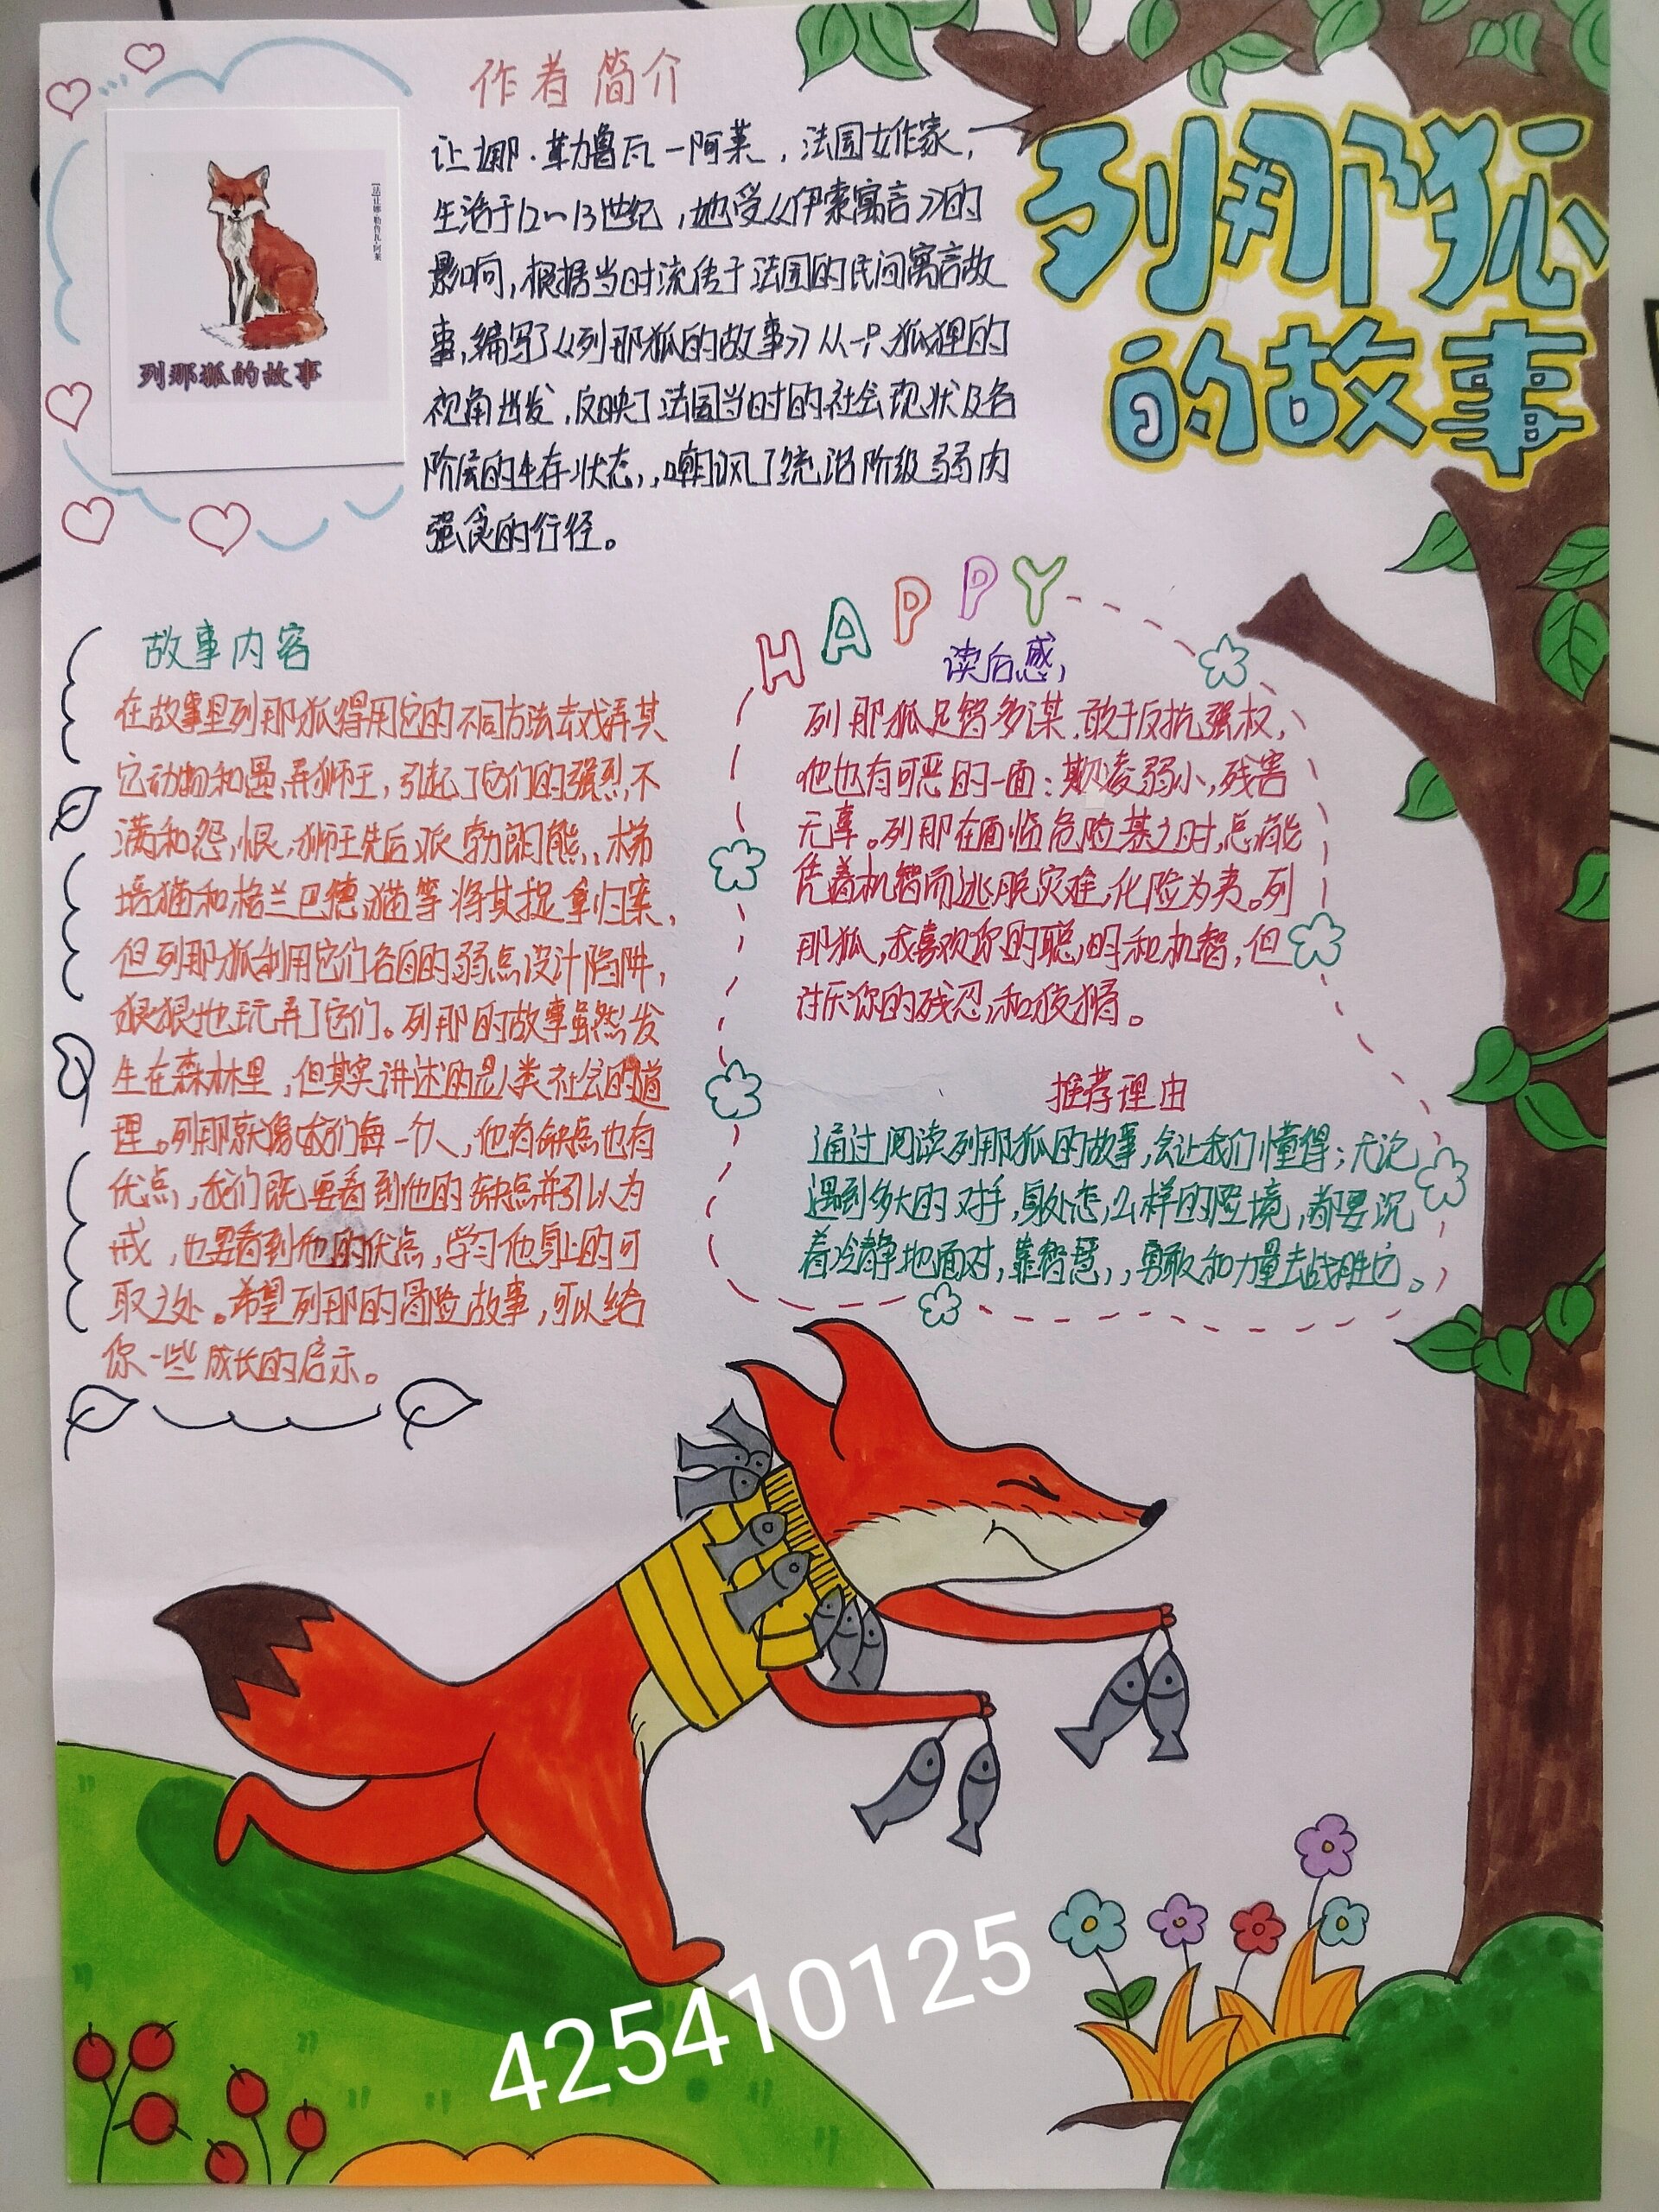 列那狐
的故事
作者简介
让娜·勒鲁瓦-阿莱，法国女作家，
生活于12～13世纪，她受《伊索寓言》的
影响，根据当时流传于法国的民间寓言故
事，编写了《列那狐的故事》从一只狐狸的
视角出发，反映了法国当时的社会现状及各
阶层的生存状态，，嘲讽了统治阶级弱肉
强食的行径。
[法]让娜·勒鲁瓦-阿莱
列那狐的故事
故事内容
在故事里列那狐得用它的不同方法去戏弄其
它动物和愚弄狮王，引起了它们的强烈不
满和怨恨，狮王先后派勃朗熊、梯
培猫和格兰巴德猫等将其捉拿归案，
但列那狐利用它们各自的弱点设计陷阱，
狠狠地玩弄了它们。列那的故事虽然发
生在森林里，但其实讲述的是人类社会的道
理。列那就像我们每一个人，他有缺点也有
优点，我们既要看到他的缺点并引以为
戒，也要看到他的优点，学习他身上的可
取之处。希望列那的冒险故事，可以给
你一些成长的启示。
HAPPY
读后感
列那狐足智多谋，敢于反抗强权，
他也有可恶的一面：欺凌弱小，残害
无辜。列那在面临危险甚之时，总能
凭着机智而逃脱灾难，化险为夷。列
那狐，我喜欢你的聪明和机智，但
讨厌你的残忍和狡猾。
推荐理由
通过阅读列那狐的故事，会让我们懂得；无论
遇到多大的对手，身处怎么样的险境，都要沉
着冷静地面对，靠智慧，，勇敢和力量去战胜它。
425410125